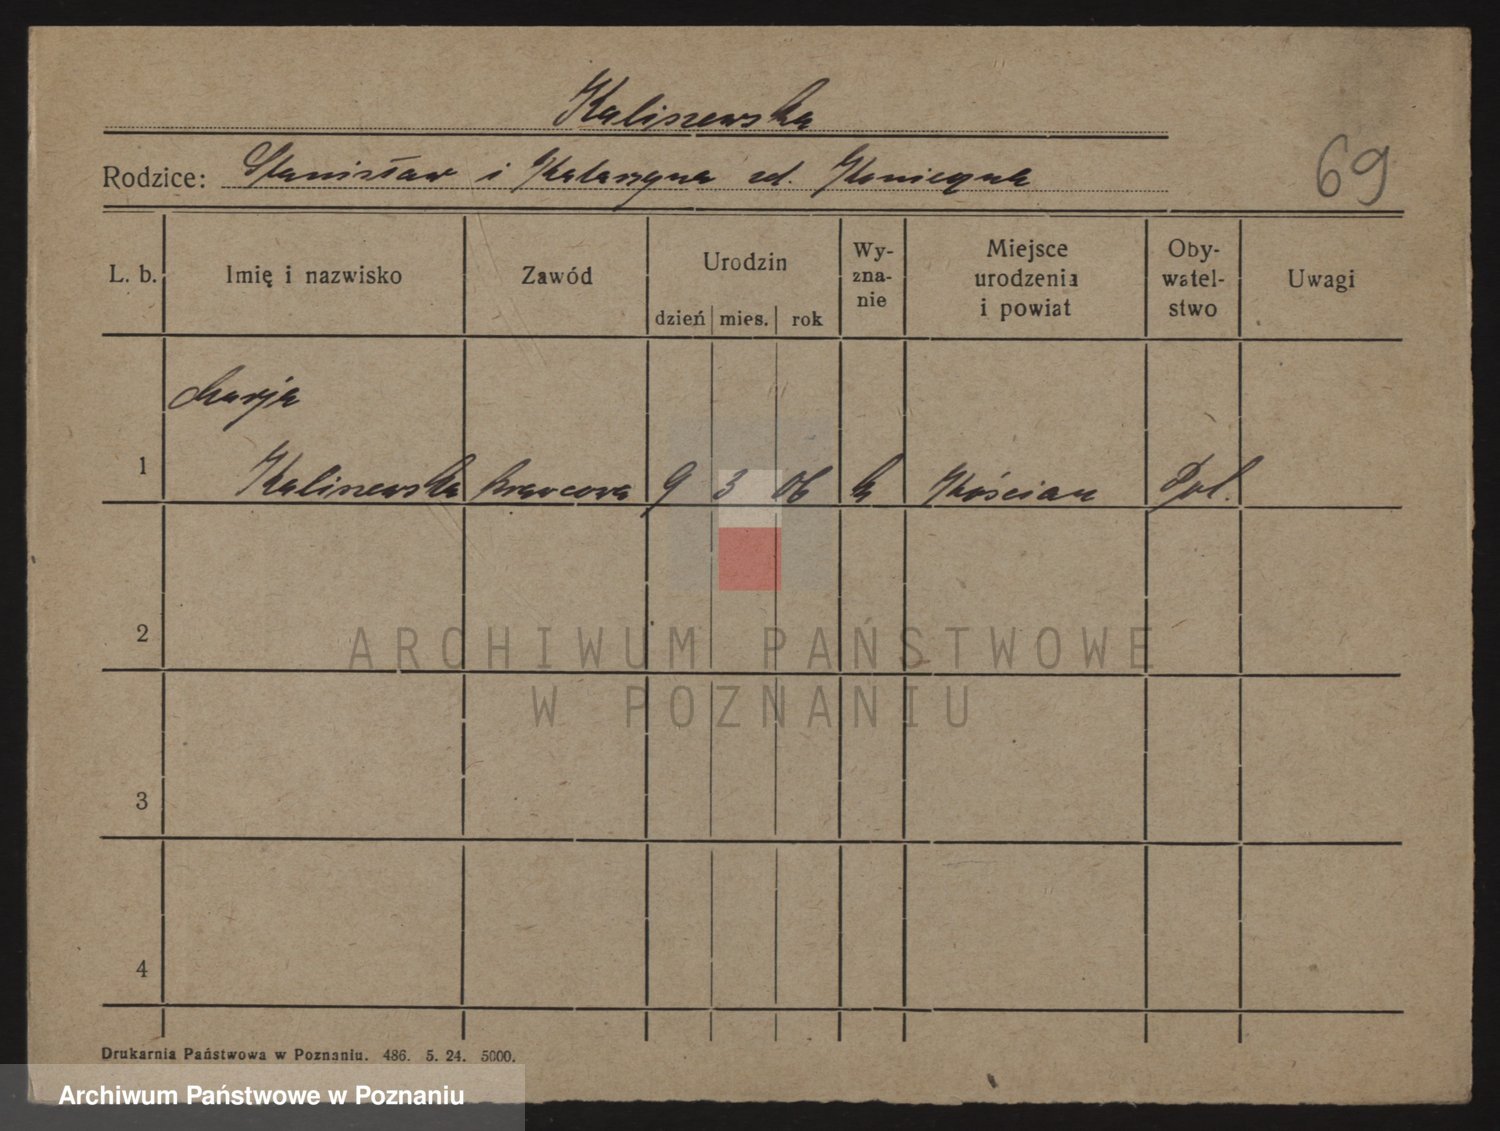 Kaliszewska
Rodzice: Stanisław i Katarzyna zd.
69
L. b. Imię i nazwisko Zawód Urodzin Wy-zna-nie Miejsce urodzenia i powiat Oby-watel-stwo Uwagi
dzień mies. rok
Marja
1 Kaliszewska krawcowa 9 3 06 k Kościan Pol.
2
ARCHIWUM PAŃSTWOWE
W POZNANIU
3
4
Drukarnia Państwowa w Poznaniu. 486. 5. 24. 5000.
Archiwum Państwowe w Poznaniu